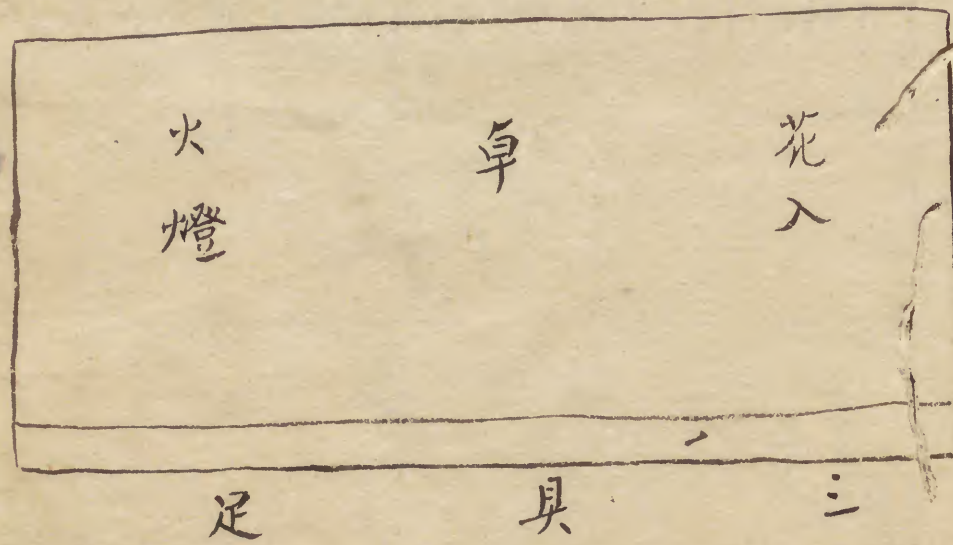 花入
卓
火燈
三具足